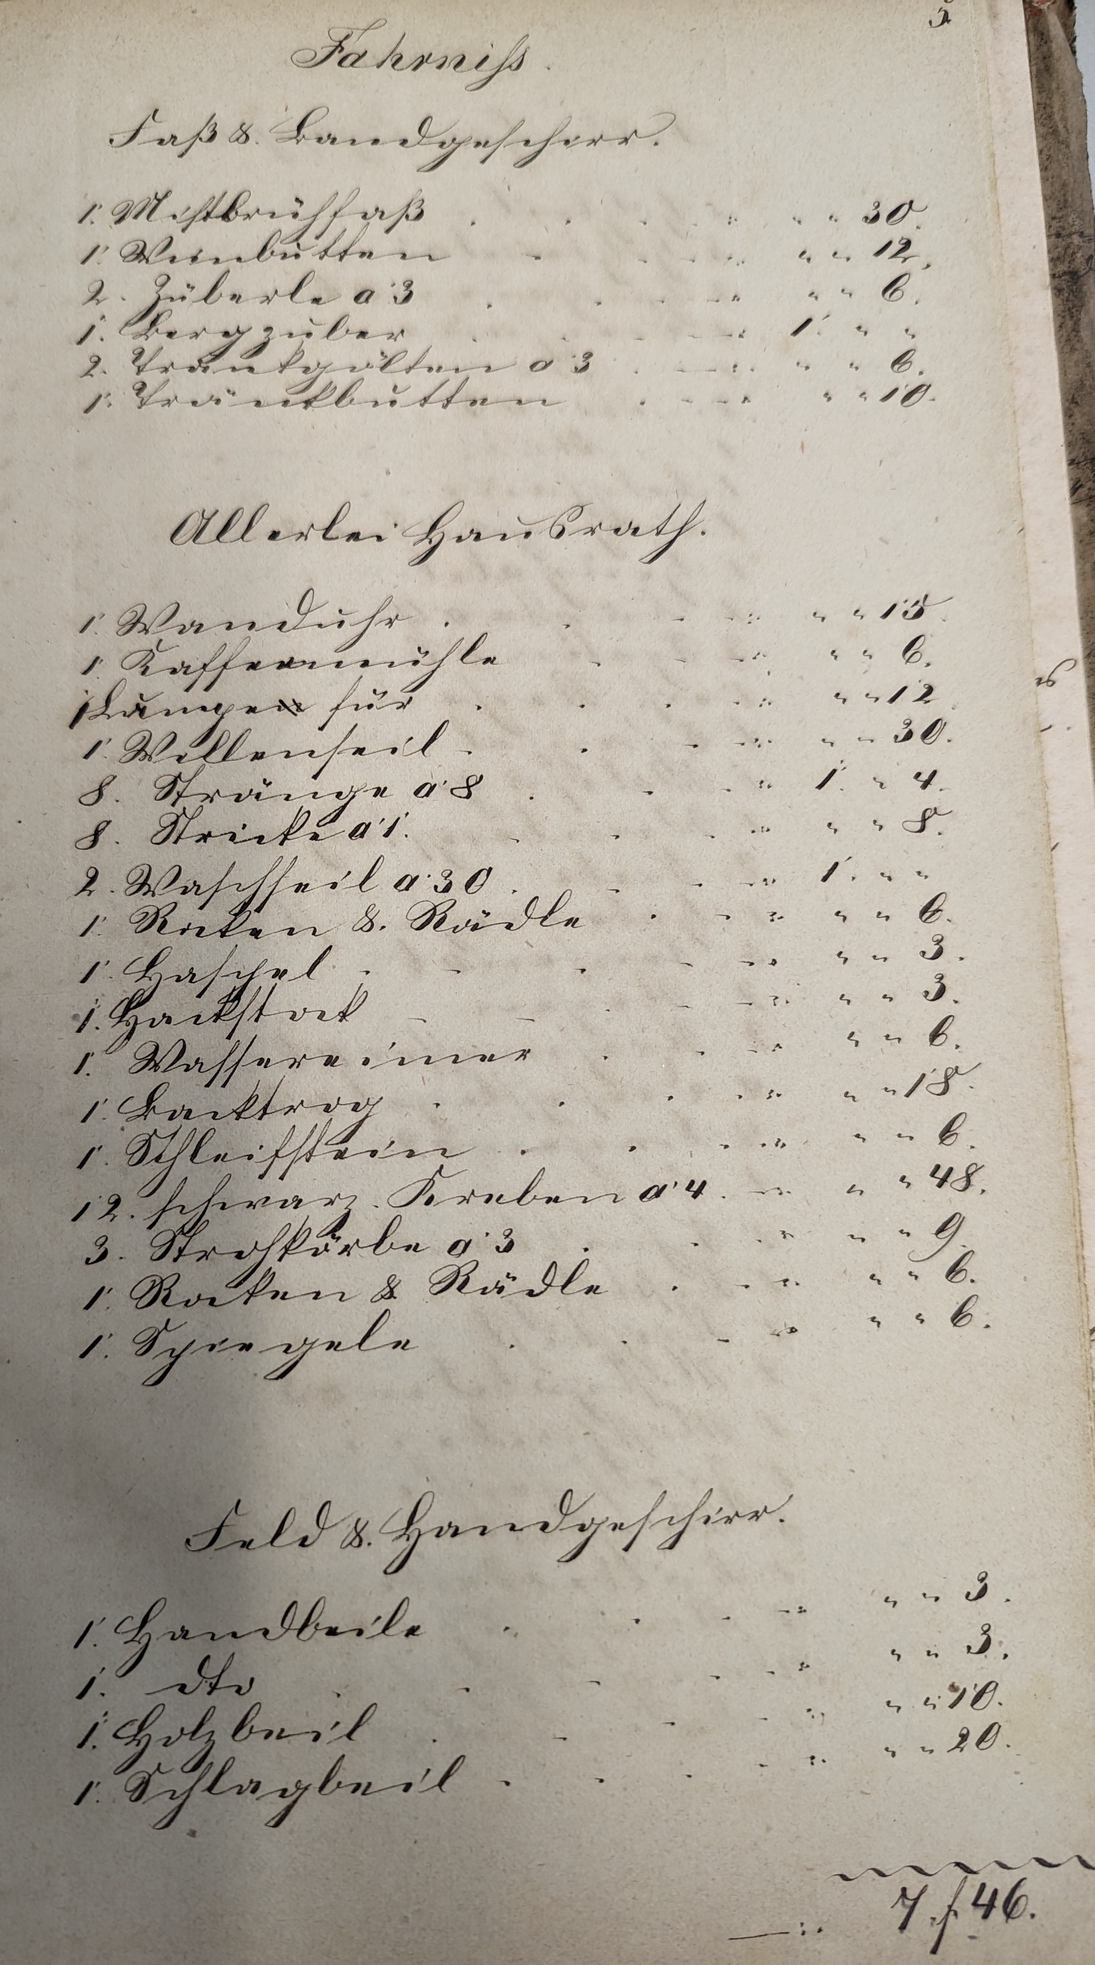 5
Fahrniss.
Faß & Bandgeschirr.
1. Mistbrühfaß . . . . " " " 30.
1. Weinbutten . . . . " " " 12.
2. Züberle a 3 . . . . " " " 6.
1. Bergzuber . . . . " 1. " "
2. Trankgölten a 3 . . . . " " " 6.
1. Tränkbutten . . . . " " " 10.
Allerlei Hausrath.
1. Wanduhr . . . . " " " 15.
1. Kaffeemühle . . . . " " " 6.
1 Lampe für . . . . " " " 12
1. Wellenseil . . . . " " " 30.
8. Stränge a 8 . . . . " 1. " 4.
8. Stricke a 1. . . . . " " " 8.
2. Waschseil a 30 . . . . " 1. " "
1. Rocken & Rädle . . . . " " " 6.
1. Haspel . . . . " " " 3.
1. Hackstock . . . . " " " 3.
1. Wassereimer . . . . " " " 6.
1. Backtrog . . . . " " " 18.
1. Schleifstein . . . . " " " 6.
12. schwarz. Kreben a 4 . . " " " 48.
3. Strohkörbe a 3 . . . " " " 9.
1. Rocken & Rädle . . . " " " 6.
1. Spiegele . . . . " " " 6.
Feld & Handgeschirr.
1. Handbeile . . . . " " " 3.
1. dto . . . . " " " 3.
1. Holzbeil . . . . " " " 10.
1. Schlagbeil . . . . " " " 20.
7 f 46.